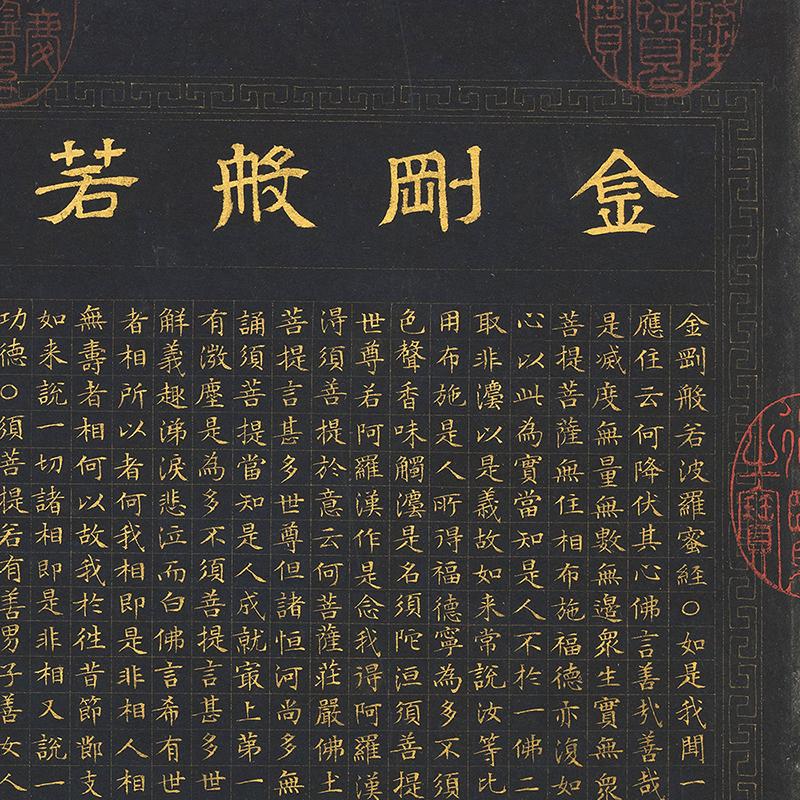 金剛般若
金剛般若波羅蜜經○如是我聞一
應住云何降伏其心佛言善哉善哉
是滅度無量無數無邊眾生實無眾
菩提菩薩無住相布施福德亦復如
心以此為實當知是人不於一佛二
取非灋以是義故如來常說汝等比
用布施是人所得福德寧為多不須
色聲香味觸灋是名須陀洹須菩提
世尊若阿羅漢作是念我得阿羅漢
淂須菩提於意云何菩薩莊嚴佛土
菩提言甚多世尊但諸恒河尚多無
誦須菩提當知是人成就㝡上第一
有微塵是為多不須菩提言甚多世
解義趣涕淚悲泣而白佛言希有世
者相所以者何我相即是非相人相
無壽者相何以故我於往昔節節支
如来說一切諸相即是非相又說一
功德○須菩提若有善男子善女人